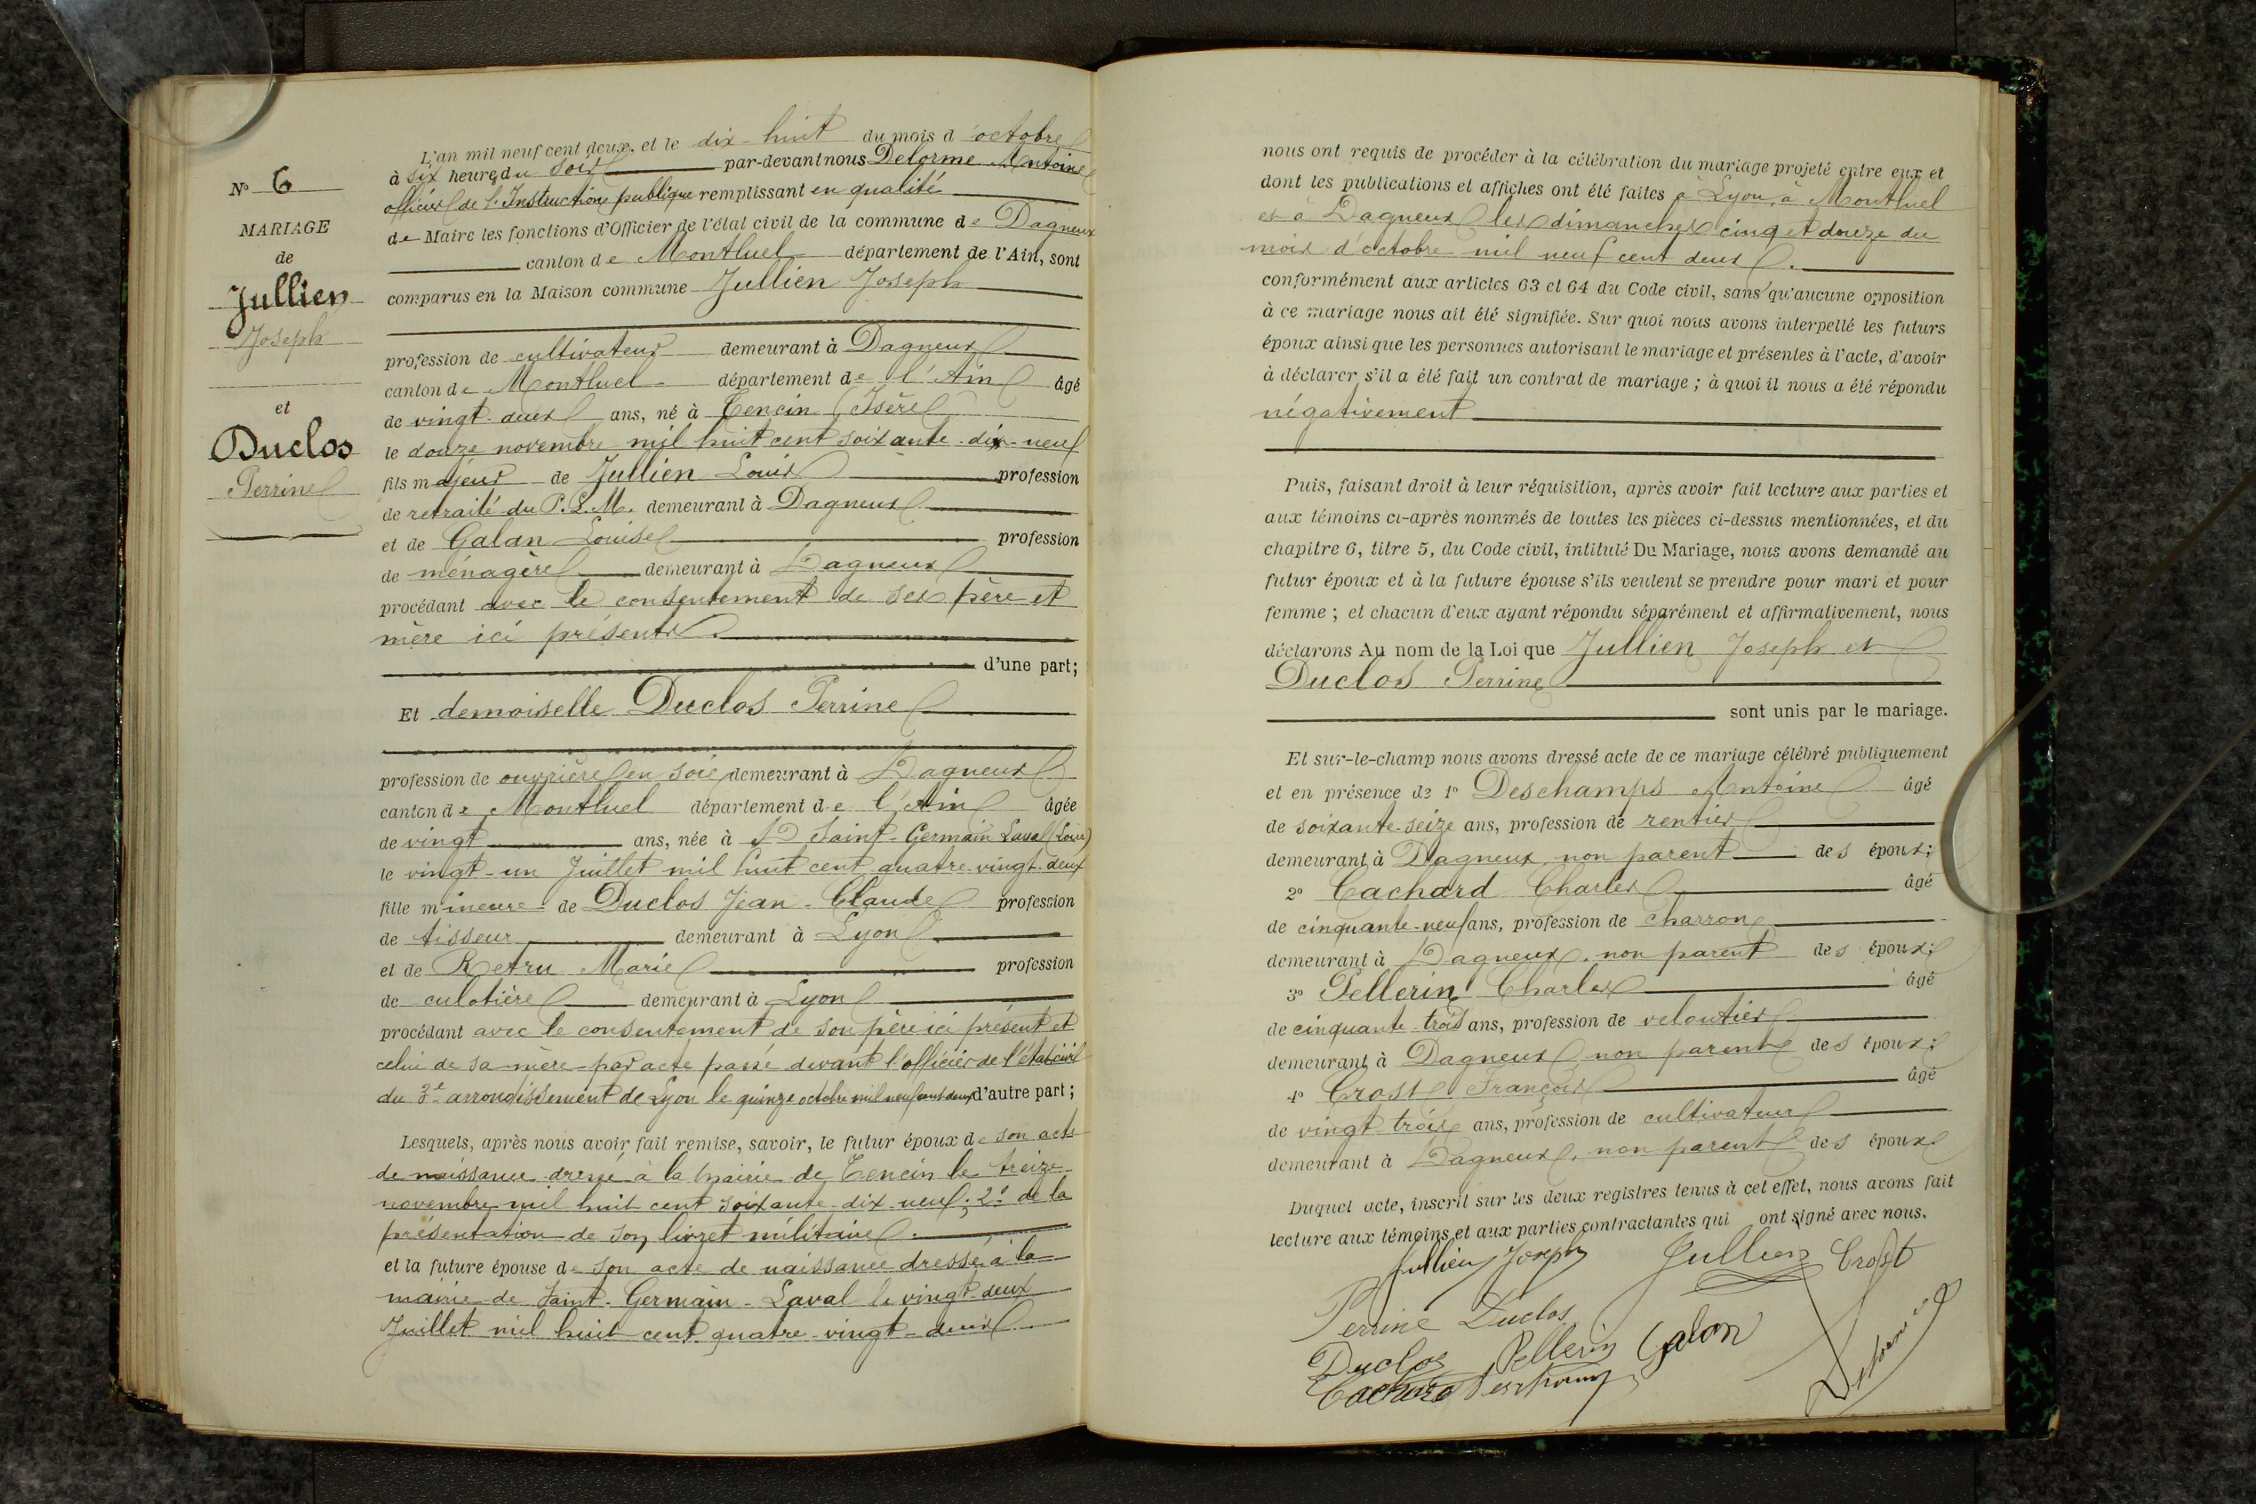 N° 6
MARIAGE
de
Jullien
Joseph
et
Duclos
Perrine
L'an mil neuf cent deux, et le dix-huit du mois d'octobre
à six heures du soir par-devant nous Delorme Antoine
officier de l'Instruction publique remplissant en qualité
de Maire les fonctions d'Officier de l'état civil de la commune de Dagneux
canton de Montluel département de l'Ain, sont
comparus en la Maison commune Jullien Joseph
profession de cultivateur demeurant à Dagneux
canton de Montluel département de l'Ain âgé
de vingt-deux ans, né à Tencin (Isère)
le douze novembre mil huit cent soixante-dix-neuf
fils majeur de Jullien Louis profession
de retraité du P.L.M. demeurant à Dagneux
et de Galan Louise profession
de ménagère demeurant à Dagneux
procédant avec le consentement de ses père et
mère ici présents.
d'une part;
Et demoiselle Duclos Perrine
profession de ouvrière en soie demeurant à Dagneux
canton de Montluel département de l'Ain âgée
de vingt ans, née à Saint-Germain Laval (Loire)
le vingt-un Juillet mil huit cent quatre-vingt-deux
fille mineure de Duclos Jean-Claude profession
de tisseur demeurant à Lyon
et de Retru Marie profession
de culotière demeurant à Lyon
procédant avec le consentement de son père ici présent et
celui de sa mère par acte passé devant l'officier de l'état civil
du 3e arrondissement de Lyon le quinze octobre mil neuf cent deux d'autre part;
Lesquels, après nous avoir fait remise, savoir, le futur époux de son acte
de naissance dressé à la mairie de Tencin le treize
novembre mil huit cent soixante-dix-neuf; 2° de la
présentation de son livret militaire.
et la future épouse de son acte de naissance dressé à la
mairie de Saint-Germain-Laval le vingt-deux
Juillet mil huit cent quatre-vingt-deux
nous ont requis de procéder à la célébration du mariage projeté entre eux et
dont les publications et affiches ont été faites à Lyon, à Montluel
et à Dagneux les dimanches cinq et douze du
mois d'octobre mil neuf cent deux.
conformément aux articles 63 et 64 du Code civil, sans qu'aucune opposition
à ce mariage nous ait été signifiée. Sur quoi nous avons interpellé les futurs
époux ainsi que les personnes autorisant le mariage et présentes à l'acte, d'avoir
à déclarer s'il a été fait un contrat de mariage; à quoi il nous a été répondu
négativement
Puis, faisant droit à leur réquisition, après avoir fait lecture aux parties et
aux témoins ci-après nommés de toutes les pièces ci-dessus mentionnées, et du
chapitre 6, titre 5, du Code civil, intitulé Du Mariage, nous avons demandé au
futur époux et à la future épouse s'ils veulent se prendre pour mari et pour
femme; et chacun d'eux ayant répondu séparément et affirmativement, nous
déclarons Au nom de la Loi que Jullien Joseph et
Duclos Perrine
sont unis par le mariage.
Et sur-le-champ nous avons dressé acte de ce mariage célébré publiquement
et en présence de 1° Deschamps Antoine âgé
de soixante-seize ans, profession de rentier
demeurant à Dagneux, non parent des époux;
2° Cachard Charles âgé
de cinquante-neuf ans, profession de charron
demeurant à Dagneux, non parent des époux;
3° Pellerin Charles âgé
de cinquante-trois ans, profession de veloutier
demeurant à Dagneux non parent des époux;
4° Crost François âgé
de vingt trois ans, profession de cultivateur
demeurant à Dagneux, non parent des époux
Duquel acte, inscrit sur les deux registres tenus à cet effet, nous avons fait
lecture aux témoins et aux parties contractantes qui ont signé avec nous.
Jullien Joseph Jullien Crost
Perrine Duclos
Duclos Pellerin Galon
Cachard Deschamps Delorme